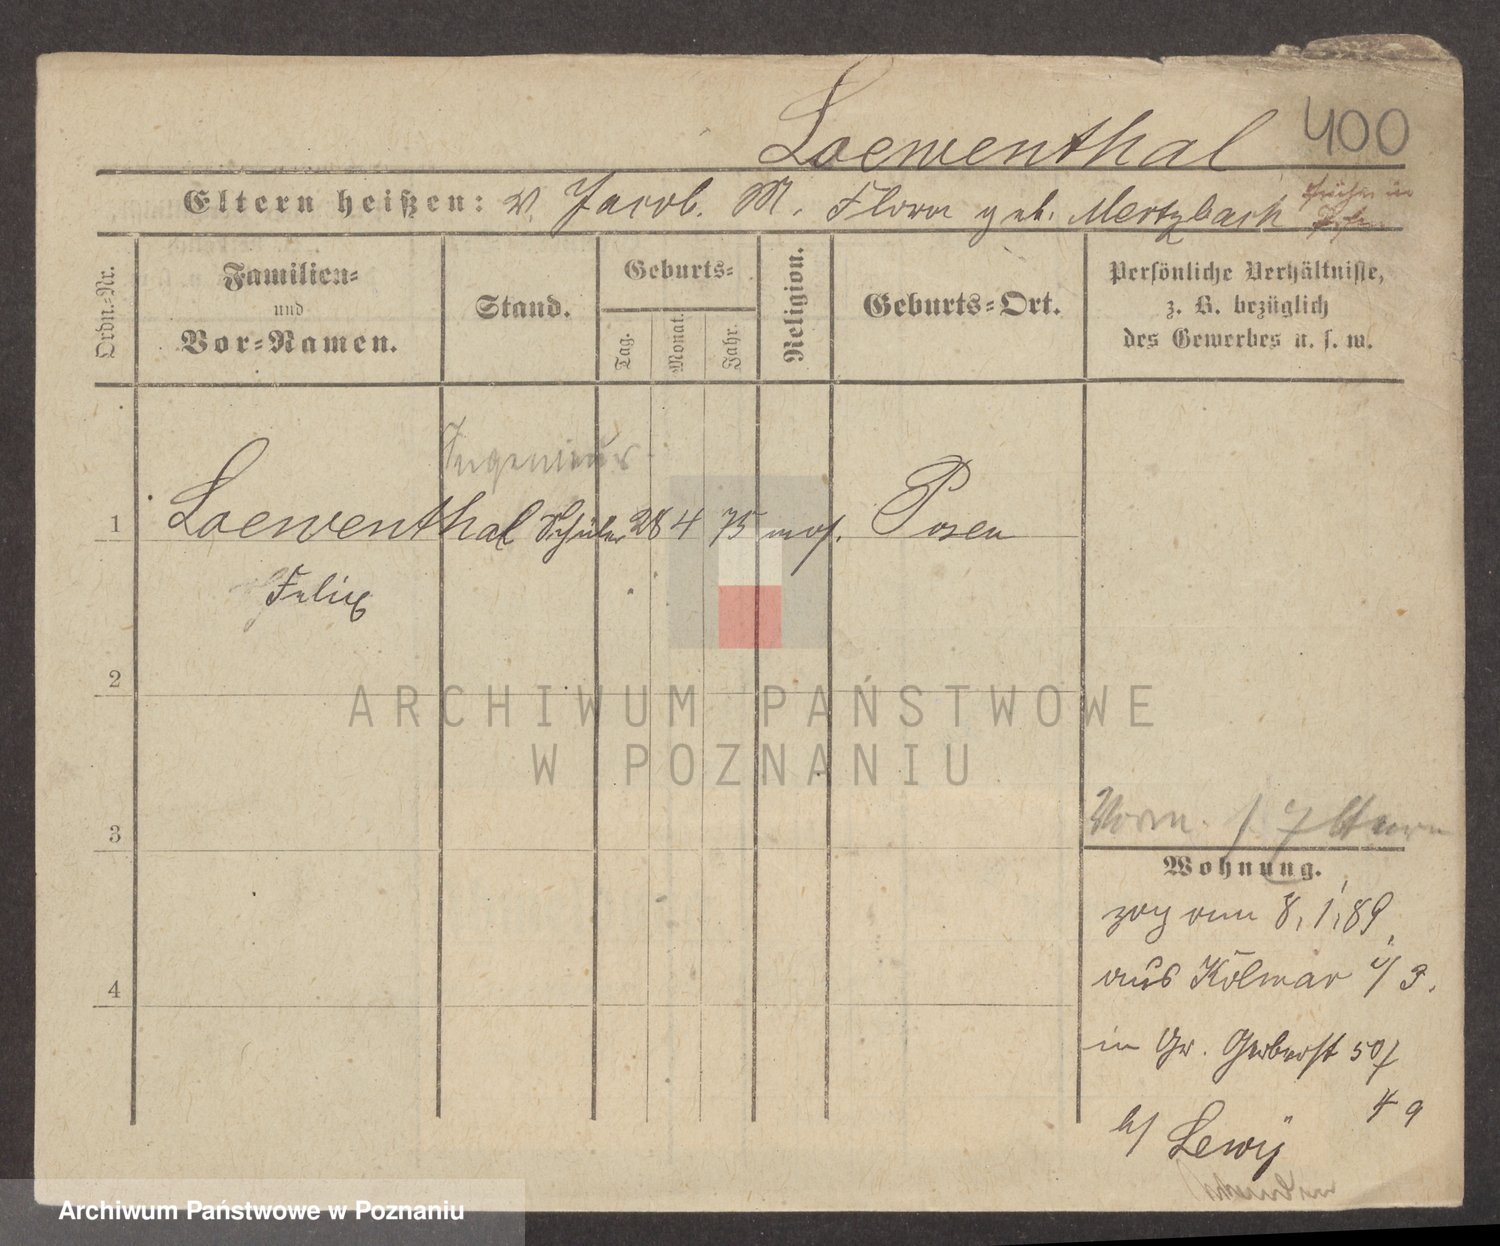 Loewenthal 400
Eltern heißen: V. Jacob. M. Flora geb. Mertzbach
Ordn.-Nr.
Familien-
und
Vor-Namen.
Stand.
Geburts-
Tag.
Monat.
Jahr.
Religion.
Geburts-Ort.
Persönliche Verhältnisse,
z. B. bezüglich
des Gewerbes u. s. w.
Ingenieur
1 Loewenthal Schüler 28 4 75 mos. Posen
Felix
2
ARCHIWUM PAŃSTWOWE
W POZNANIU
3
Wohnung.
zog am 8.1.89
aus Kolmar i/
4
in Gr. Gerberst 50
b/ Lewy
Archiwum Państwowe w Poznaniu